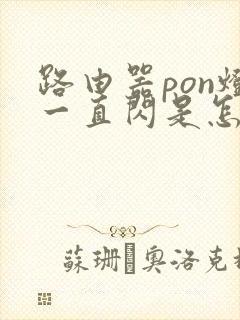 路由器pon燈
一直閃是怎
蘇珊 奧洛克